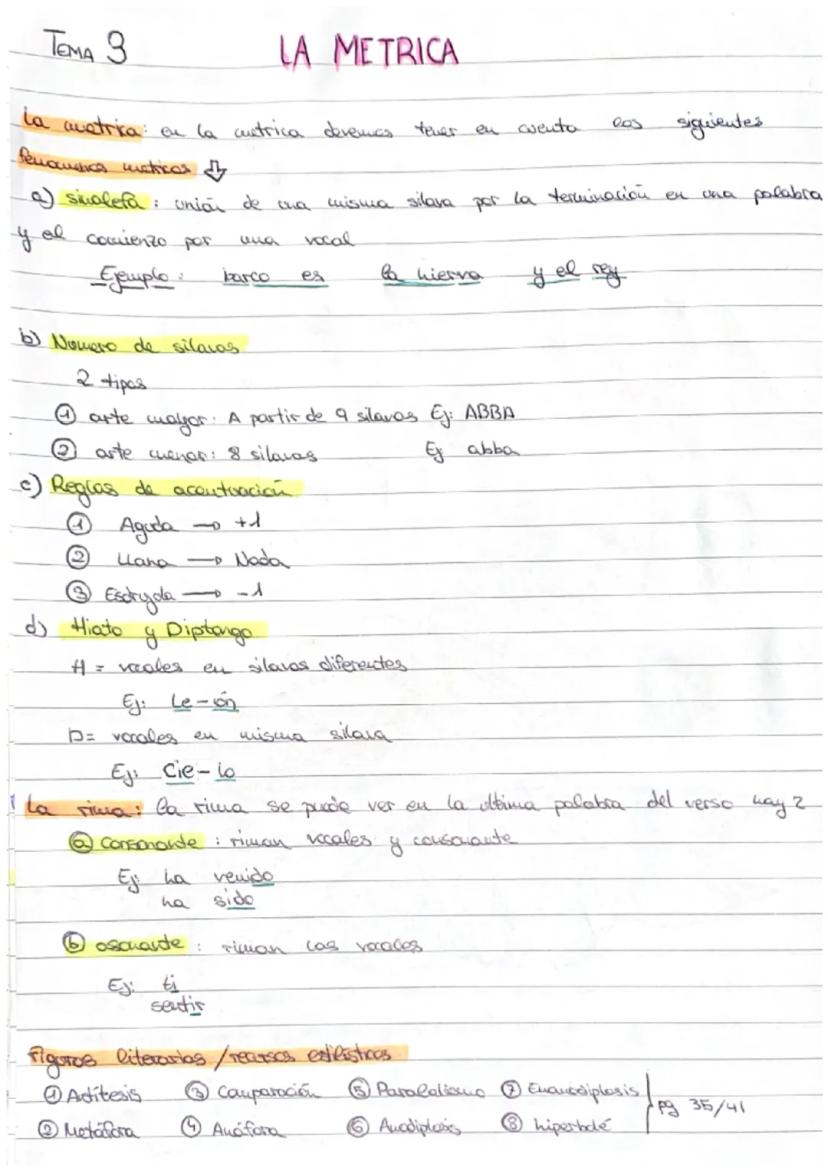 TEMA 3 LA METRICA
La metrica: en la metrica devemos tener en cuenta los siguientes
fenomenos metricos ⇩
a) sinalefa: unión de una misma silava por la terminación en una palabra
y el comienzo por una vocal
Ejemplo: barco es la hierva y el rey
b) Numero de silavas
2 tipos
① arte mayor: A partir de 9 silavas Ej: ABBA
② arte menor: 8 silavas Ej abba
c) Reglas de acentuación
① Aguda → +1
② Llana → Nada
③ Esdrujula → -1
d) Hiato y Diptongo
H = vocales en silavas diferentes
Ej: Le-ón
D= vocales en misma silava
Ej: Cie-lo
La rima: la rima se puede ver en la última palabra del verso hay 2
ⓐ Consonante: riman vocales y consonante
Ej: ha venido
ha sido
ⓑ osonante: riman las vocales
Ej: ti
sentir
Figuras literarias / recursos estilisticos
① Antitesis ③ Comparación ⑤ Paralelismo ⑦
② Metáfora ④ Anáfora ⑥ Anadiplosis ⑧ hiperbole pg 35/41